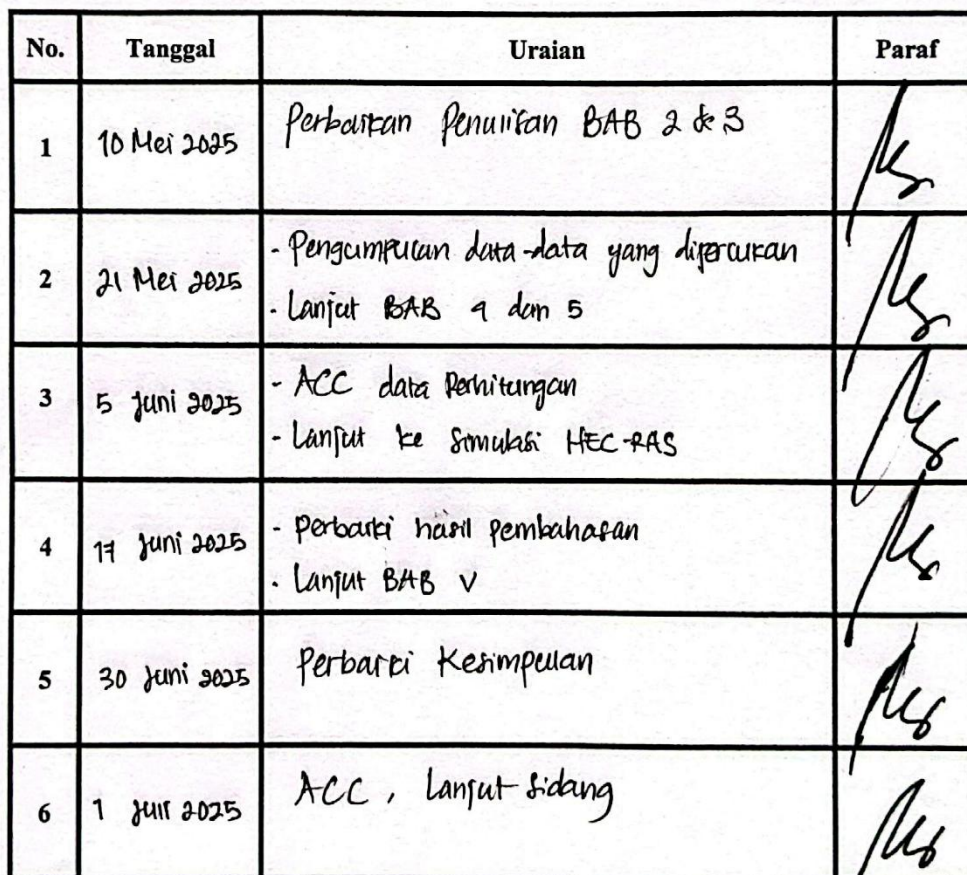 No. Tanggal Uraian Paraf
1 10 Mei 2025 Perbaikan Penulisan BAB 2 & 3
2 21 Mei 2025 - Pengumpulan data-data yang diperlukan
- Lanjut BAB 4 dan 5
3 5 Juni 2025 - ACC data Perhitungan
- Lanjut ke Simulasi HEC-RAS
4 17 Juni 2025 - Perbaiki hasil pembahasan
- Lanjut BAB V
5 30 Juni 2025 Perbaiki Kesimpulan
6 1 Juli 2025 ACC, Lanjut Sidang